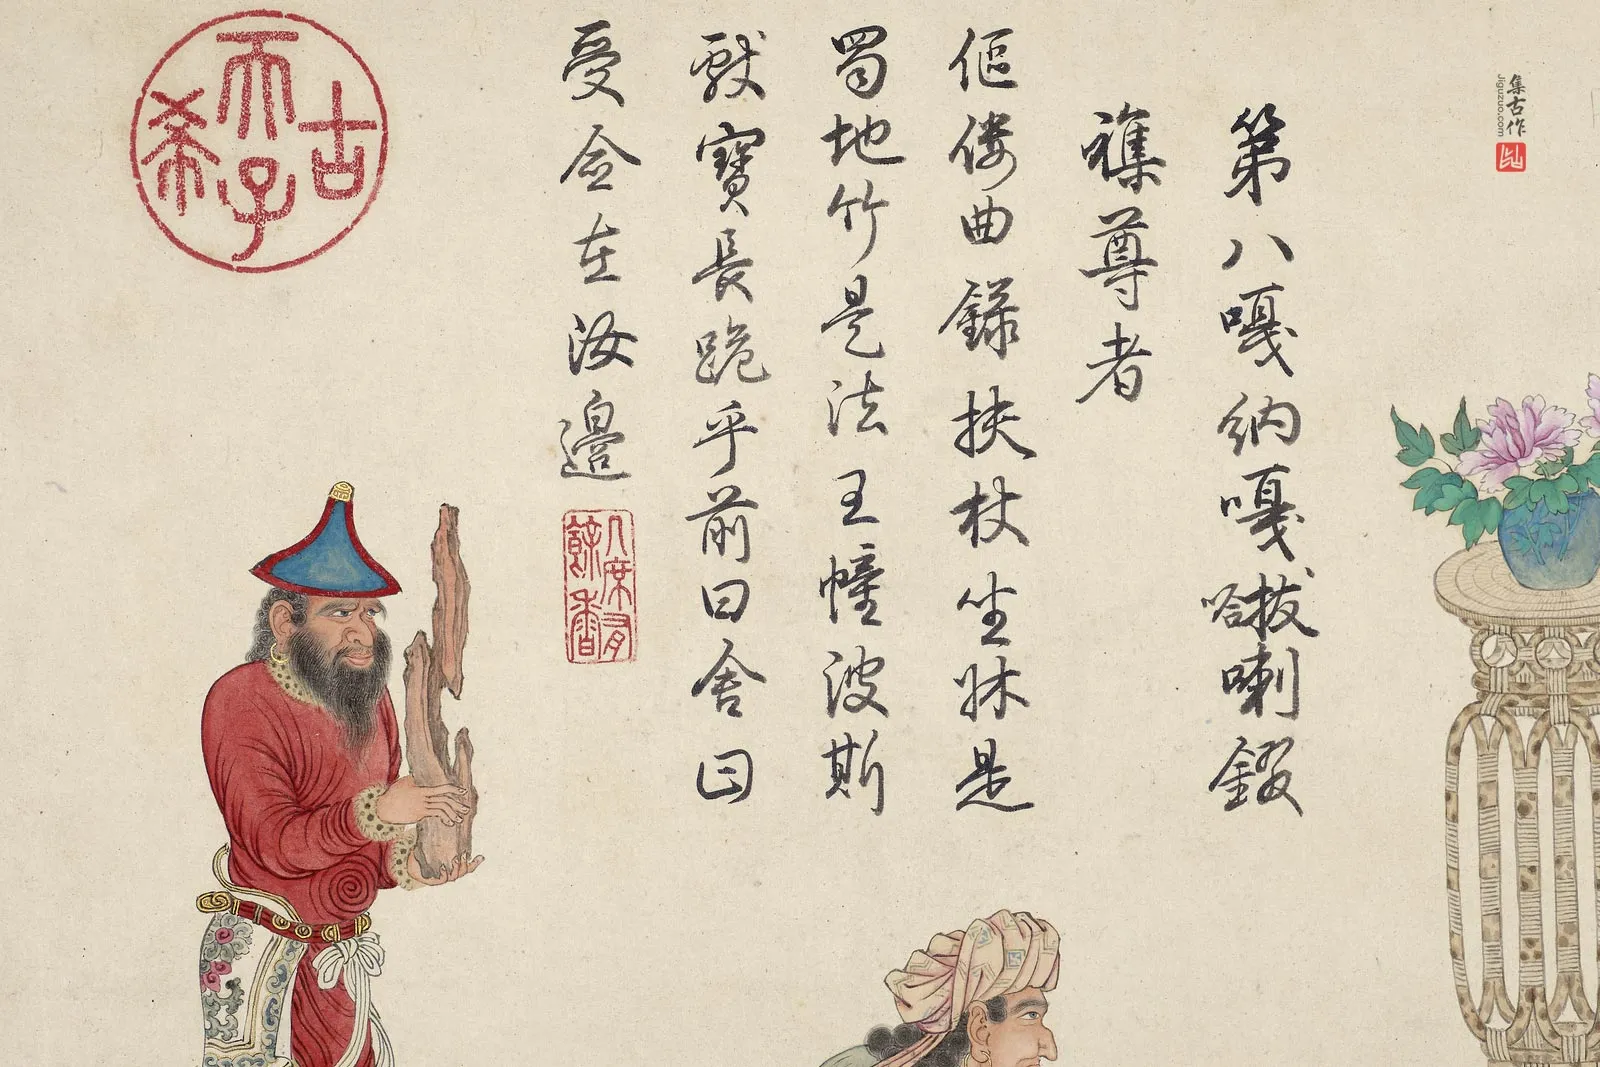 集古作
Jiguzuo.com
第八嘎納嘎哈拔喇錣
襍尊者
傴僂曲錄扶杖坐牀是
蜀地竹是法王幢波斯
獻寶長跪乎前曰舍曰
受念在汝邊
几席有餘香
古希天子